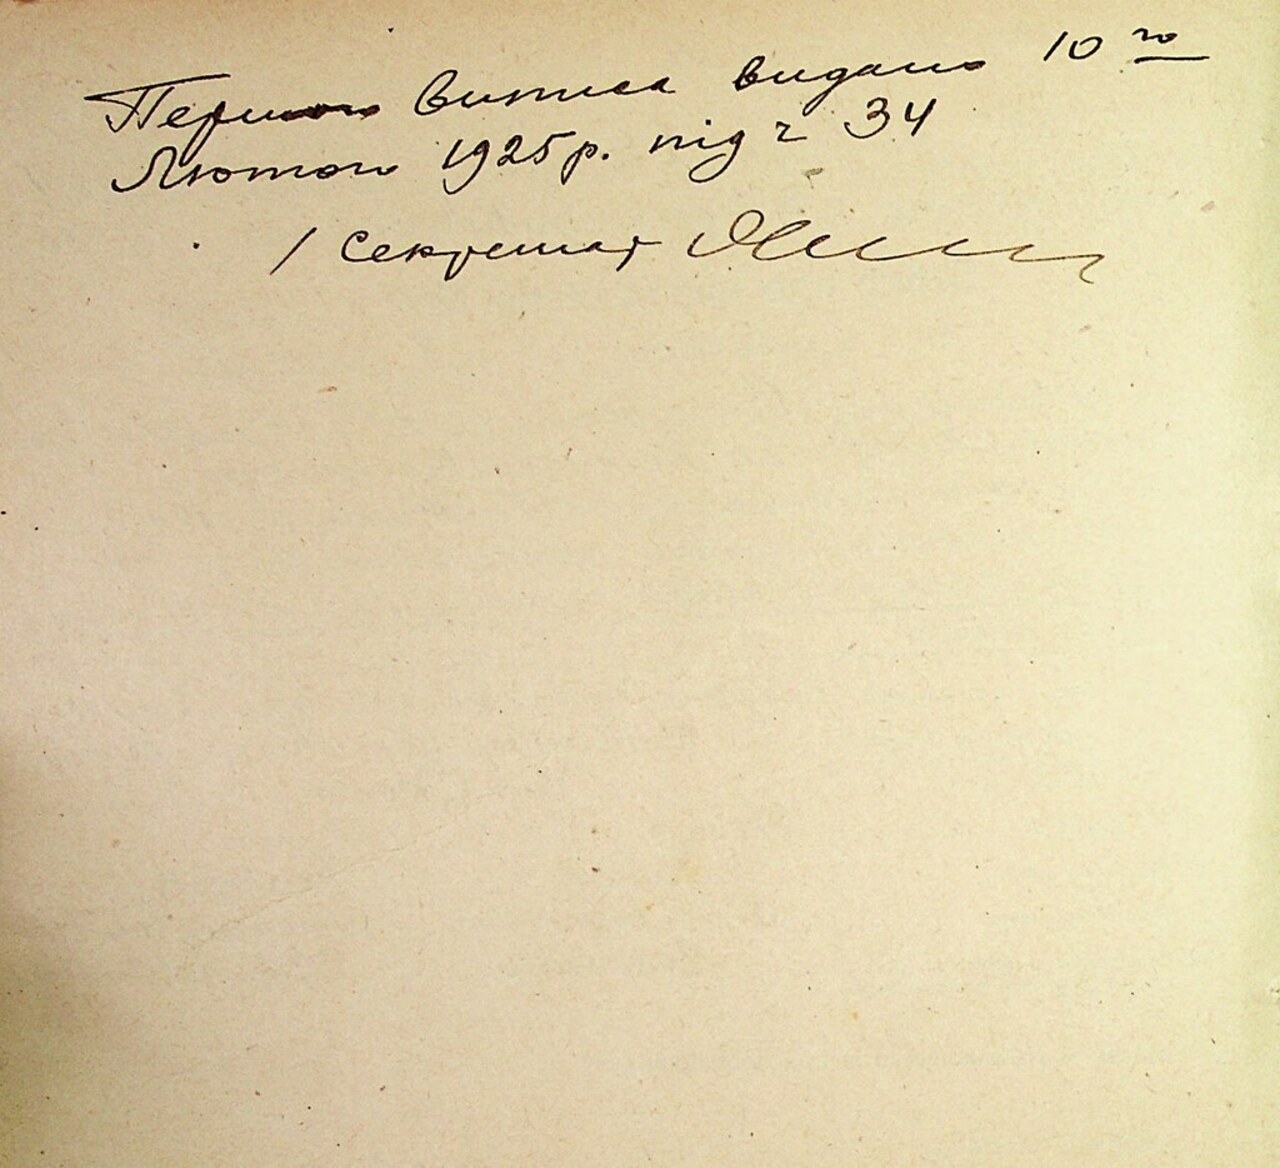 Першого виписа видано 10го
Лютого 1925р. під ч 34
/ Секретар